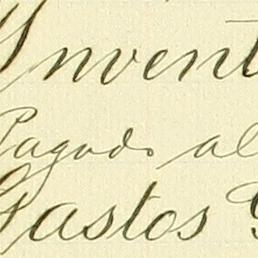 Invent
Pagado al
Gastos G